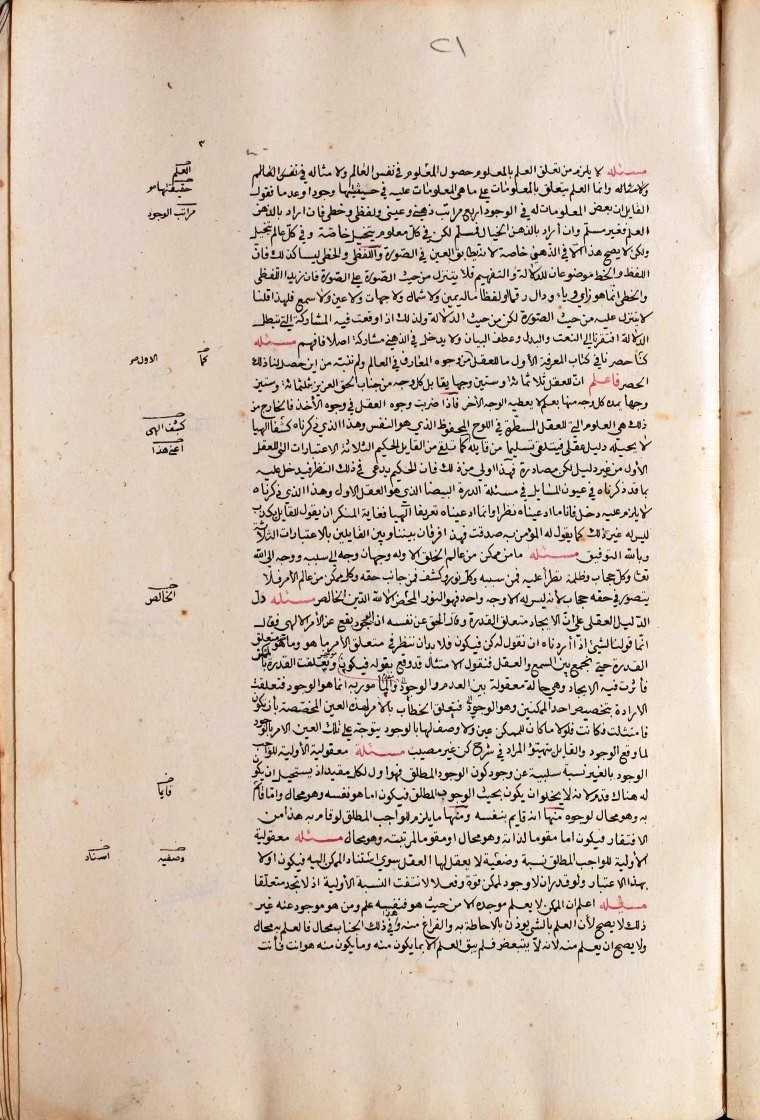 ٢١
مسئله لا يلزم من تعلق العلم بالمعلوم حصول المعلوم في نفس العالم ولا مثاله في نفس العالم
ولا مثاله وانما العلم يتعلق بالمعلومات على ما هي المعلومات عليه في حيثيتها وجودا وعدما فقول
القايل ان بعض المعلومات له في الوجود اربع مراتب ذهني وعيني ولفظي وخطي فان اراد بالذهن
العلم فغير مسلم وان أراد بالذهن الخيال فمسلم لكن في كل معلوم يتخيل خاصة وفي كل عالم يتخيل
ولكن لا يصح هذا الا في الذهني خاصة لانه يطابق العين في الصورة واللفظي والخطي ليسا كذلك فان
اللفظ والخط موضوعان للدلالة والتفهيم فلا يتنزل من حيث الصورة على الصورة فان زيدا اللفظي
والخطي انما هو زاي وياء ودال رقما ولفظا ماله يمين ولا شمال ولا جهات ولا عين ولا سمع فلهذا قلنا
لا يتنزل عليه من حيث الصورة لكن من حيث الدلالة ولذلك اذا وقعت فيه المشاركة التي تبطل
الدلالة افتقرنا الى النعت والبدل وعطف البيان ولا يدخل في الذهني مشاركة اصلا فافهم مسئله
كنا حصرنا في كتاب المعرفة الأول ما للعقل من وجوه المعارف في العالم ولم ننبه من اين حصل لنا ذلك
الحصر فاعلم ان للعقل ثلاثمائة وستين وجها يقابل كل وجه من جناب الحق العزيز ثلثمائة وستين
وجها يمده كل وجه منها بعلم لا يعطيه الوجه الآخر فاذا ضربت وجوه العقل في وجوه الأخذ فالخارج من
ذلك هي العلوم التي للعقل المسطرة في اللوح المحفوظ الذي هو النفس وهذا الذي ذكرناه كشفا الهيا
لا يحيله دليل عقلي فيتلقى تسليما من قايله كما تلقى من القايل الحكيم الثلاثة الاعتبارات التي للعقل
الأول من غير دليل لكن مصادرة فهذا اولى من ذلك فان الحكيم يدعي في ذلك النظر فيدخل عليه
بما قد ذكرناه في عيون المسايل في مسئلة الدرة البيضا الذي هو العقل الاول وهذا الذي ذكرناه
لا يلزم عليه دخل فانا ما ادعيناه نظرا وانما ادعيناه تعريفا الهيا فغاية المنكر ان يقول للقايل يكذب
ليس له غير ذلك كما يقول له المؤمن به صدقت فهذا فرقان بيننا وبين القايلين بالاعتبارات الثلاثة
وبالله التوفيق مسئله ما من ممكن من عالم الخلق الا وله وجهان وجه إلى سببه ووجه الى الله
تعا وكل حجاب وظلمة تطرأ عليه فمن سببه وكل نور وكشف فمن جانب حقه وكل ممكن من عالم الأمر فلا
يتصور في حقه حجاب لأنه ليس له الا وجه واحد فهو النور المحض الا لله الدين الخالص مسئله دل
الدليل العقلي على ان الايجاد متعلق القدرة وقال الحق عن نفسه ان الوجود يقع عن الأمر الالهي فقال
انما قولنا لشئ اذا أردناه ان نقول له كن فيكون فلا بد ان ننظر في متعلق الأمر ما هو وما هو متعلق
القدرة حتى اجمع بين السمع والعقل فنقول الامتثال قد وقع بقوله فيكون وتعلقت القدرة
فأثرت فيه الايجاد وهي حالة معقولة بين العدم والوجود والمأمور به انما هو الوجود فتعلقت
الارادة بتخصيص احد الممكنين وهو الوجود فتعلق الخطاب بالأمر لهذه العين المخصصة بأن تكون
فامتثلت فكانت فلولا ما كان للممكن عين ولا وصف لها بالوجود يتوجه على تلك العين الامر بالوجود
لما وقع الوجود والقايل بتهيئو المراد في شرح كن غير مصيب مسئله معقولية الأولية للواجب
الوجود بالغير نسبة سلبية عن وجود كون الوجود المطلق فهو اول لكل مقيد اذ يستحيل ان يكون
له هناك قدم لانه لا يخلو ان يكون بحيث الوجوب المطلق فيكون اما هو نفسه وهو محال واما قائما
به وهو محال لوجوه منها انه قايم بنفسه ومنها ما يلزم للواجب المطلق لو قام به هذا من
الافتقار فيكون اما مقوما لذاته وهو محال او مقوما لمرتبته وهو محال مسئله معقولية
الأولية للواجب المطلق نسبة وضعية لا يعقل لها العقل سوى استناد الممكن اليه فيكون اولا
بهذا الاعتبار ولو قدر ان لا وجود لممكن قوة وفعلا لانتفت النسبة الأولية اذ لا تجد متعلقا
مسئله اعلم ان الممكن لا يعلم موجده الا من حيث هو فنفسه علم ومن هو موجود عنه غير
ذلك لا يصح لأن العلم بالشئ يوذن بالاحاطة به والفراغ منه وهذا في ذلك الجناب محال فالعلم به محال
ولا يصح ان يعلم منه لانه لا يتبعض فلم يبق العلم الا بما يكون منه وما يكون منه هو انت فأنت
العلم
حقيقتها
مراتب الوجود
كما الاول
كشف الهى
اعنى هذا
الخالص
قايما
وصفيه اسناد